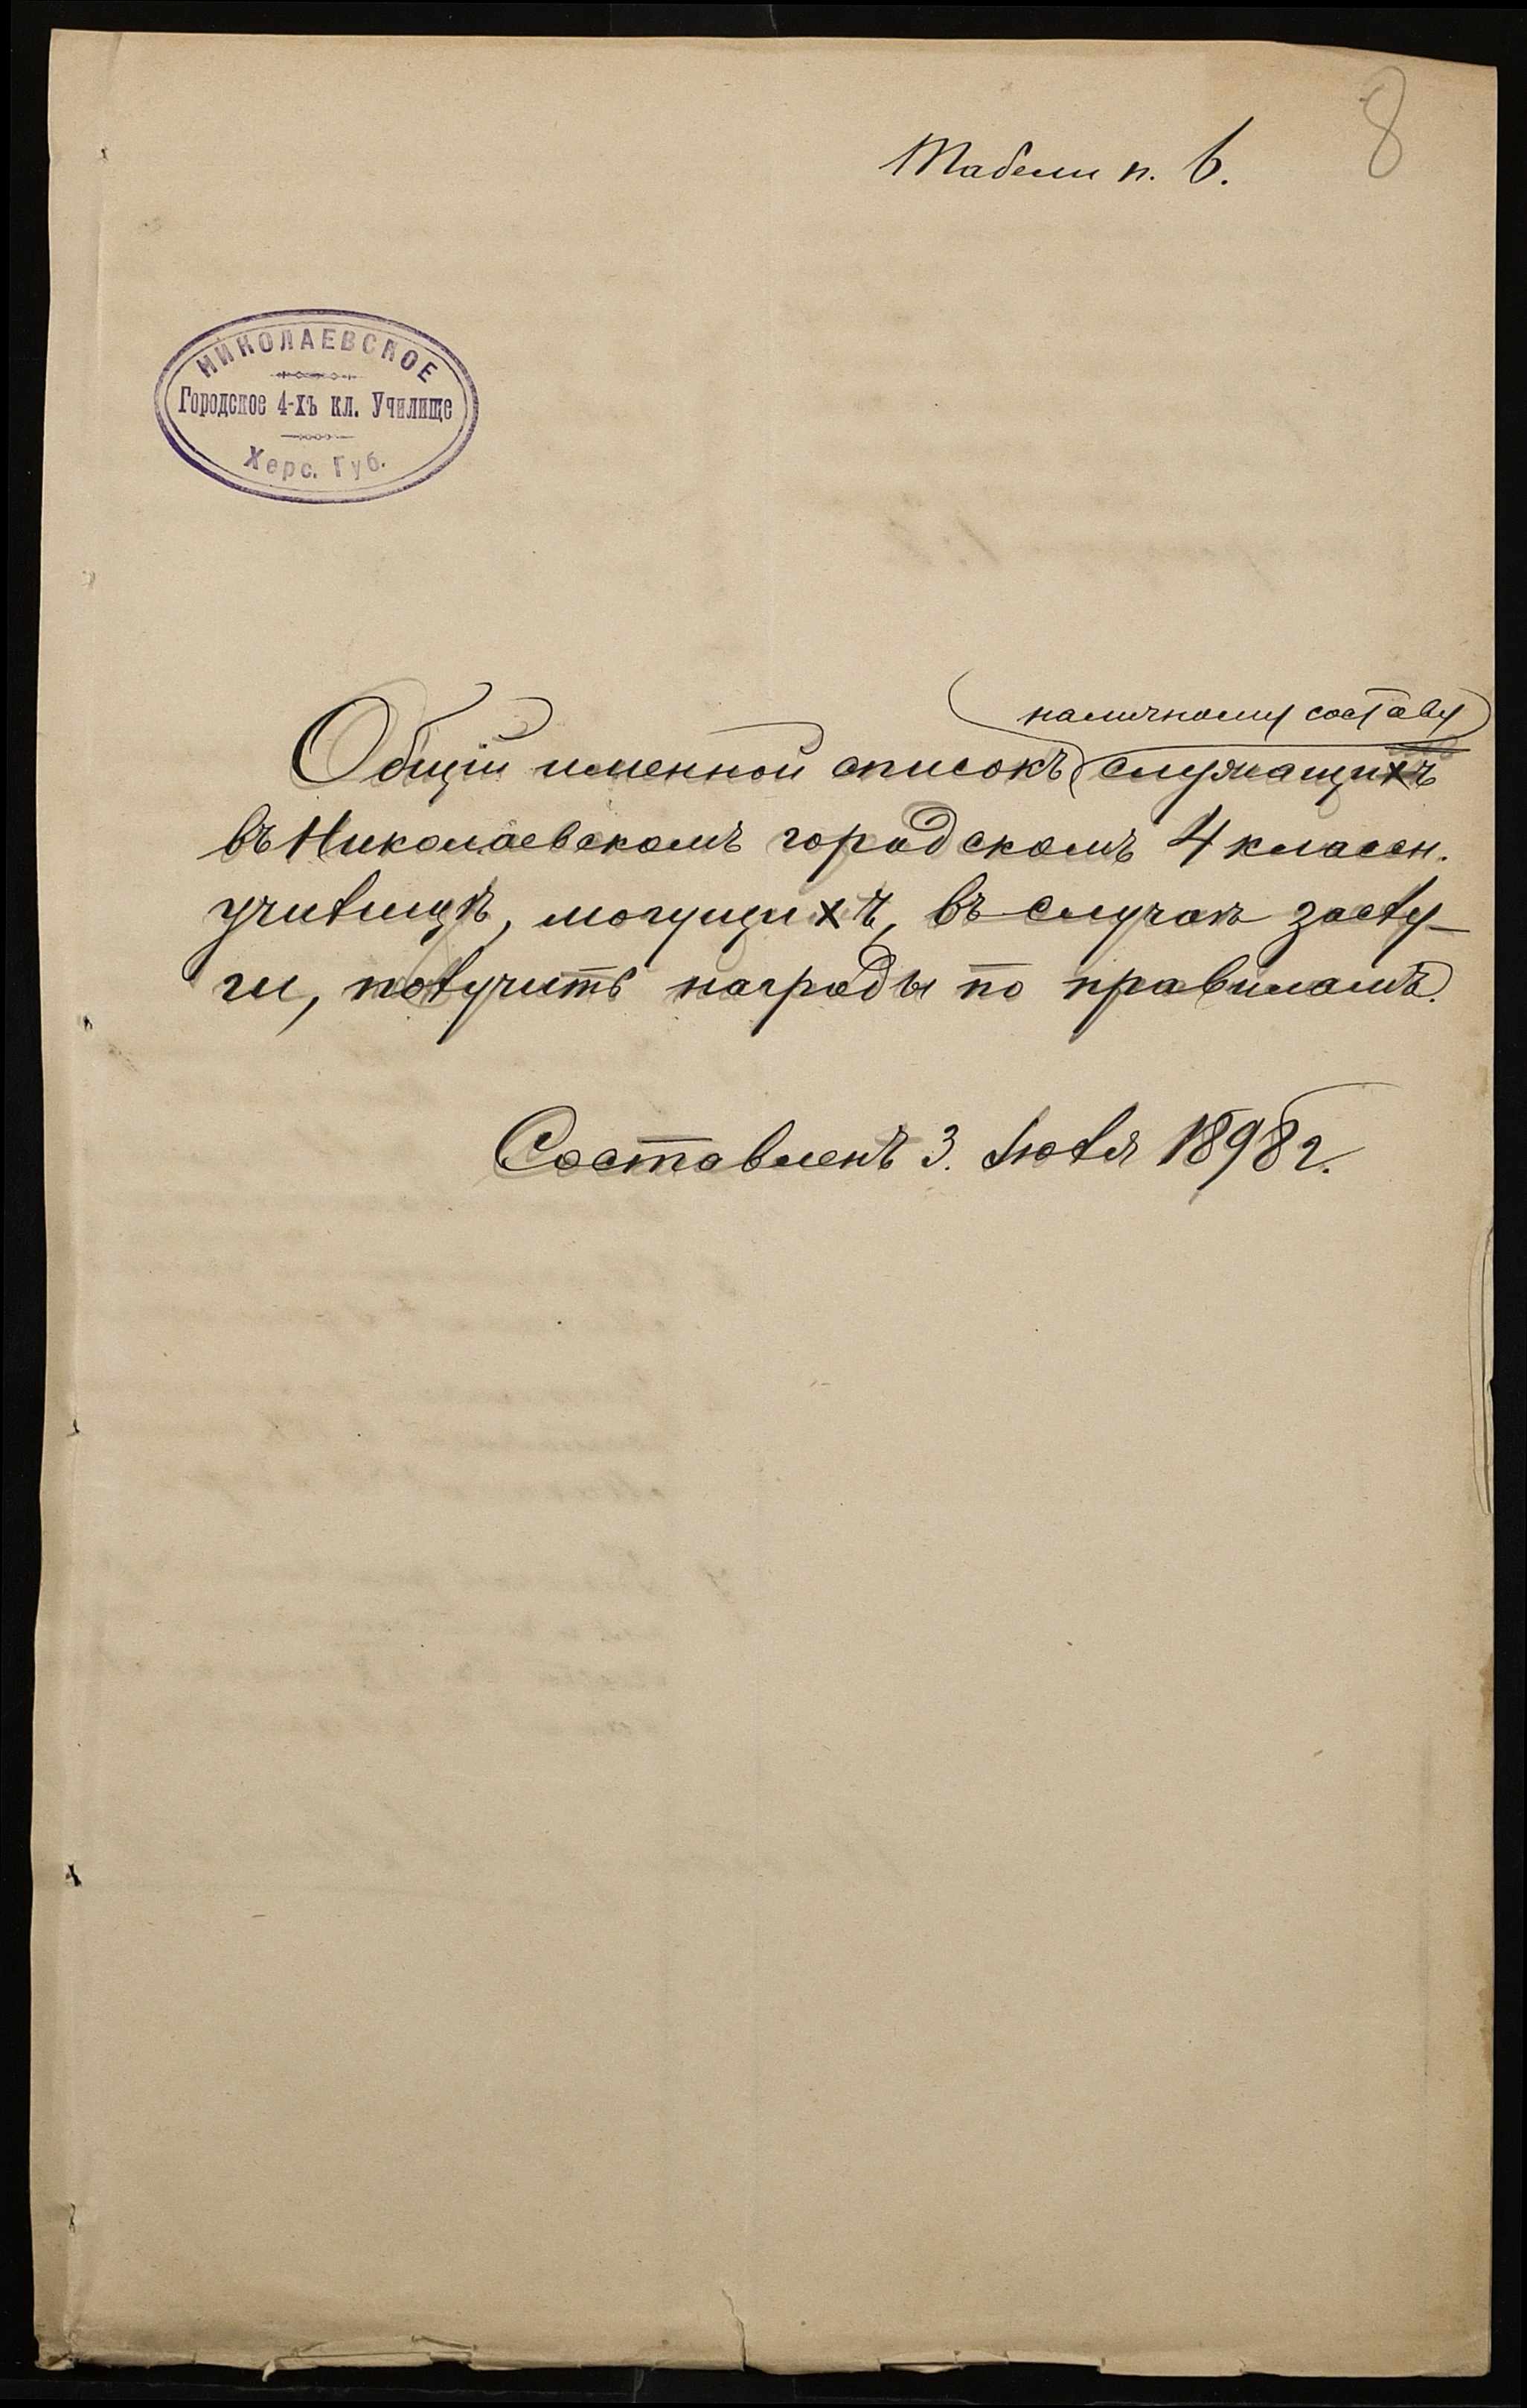 8
Табели п. 6.
НИКОЛАЕВСКОЕ
Городское 4-хъ кл. Училище
Херс. Губ.
наличному составу
Общій именной списокъ служащихъ
въ Николаевскомъ городскомъ 4 классн.
училищѣ, могущихъ, въ случаѣ заслу-
ги, получить награды по правиламъ.
Составленъ 3. Іюля 1898 г.